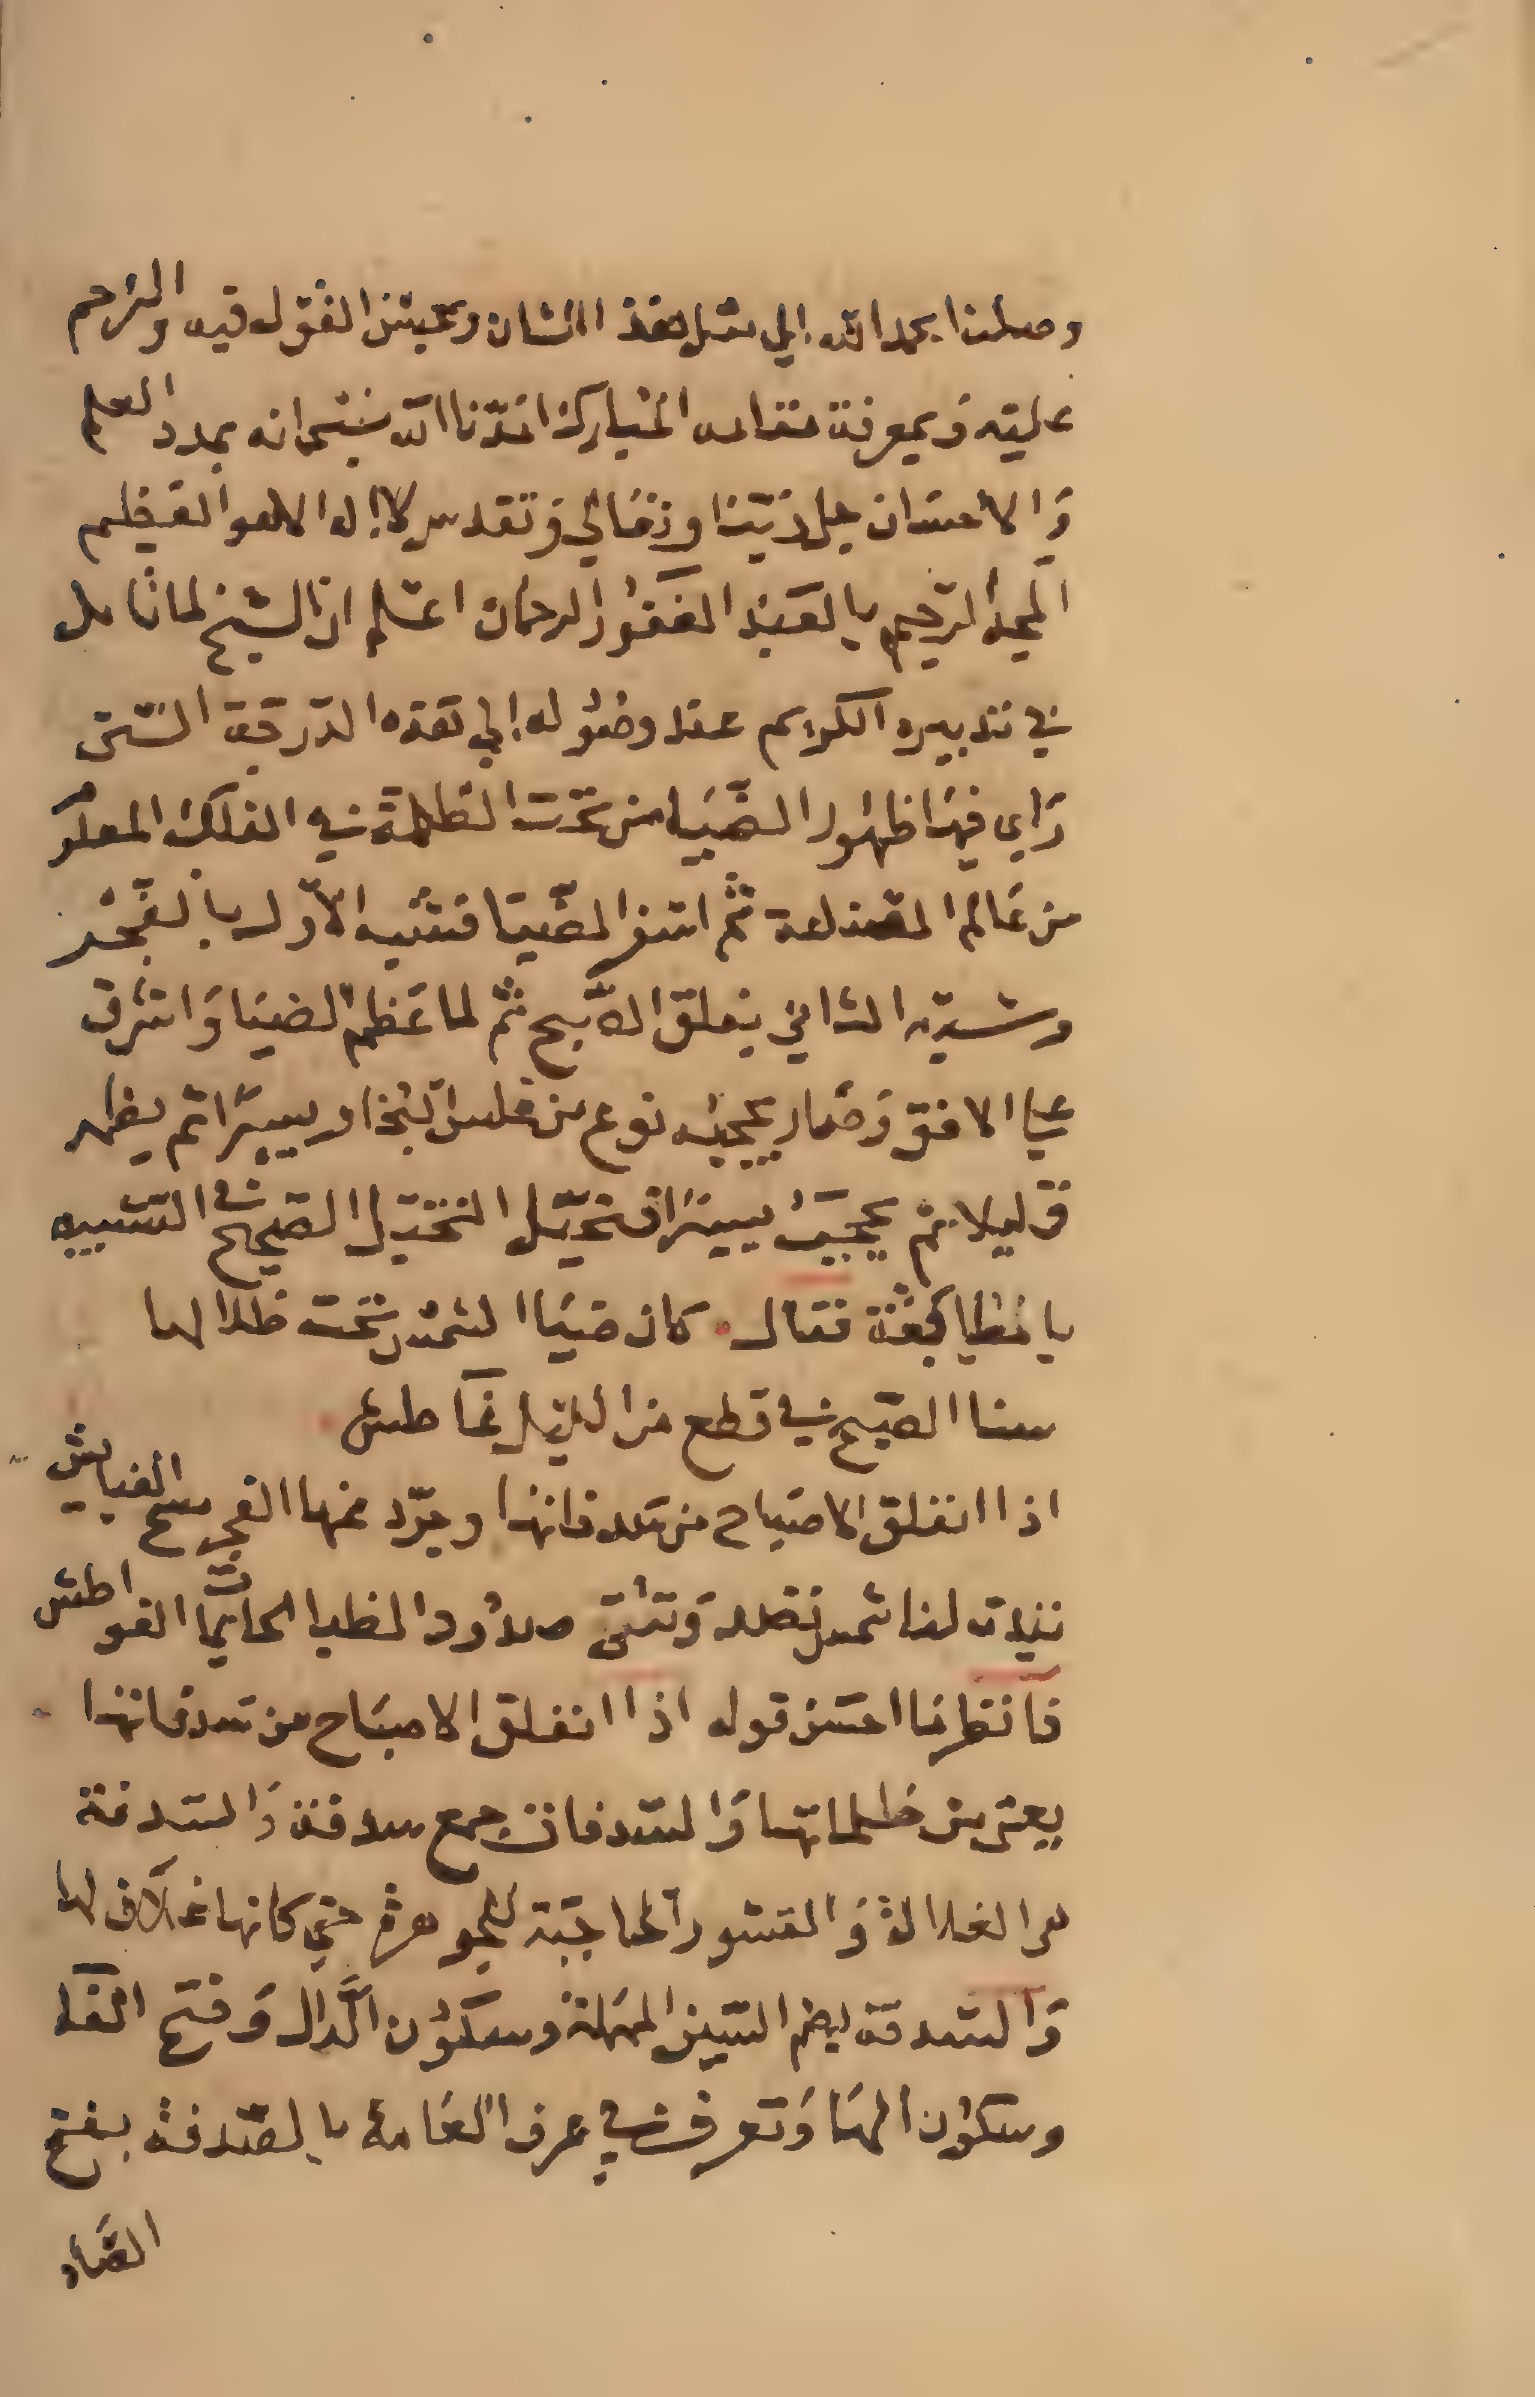 وصلنا بحمد الله إلي مثل هذا الشان وتحبيتن القول فيه والترحم
عليه وبمعرفة مقامه المبارك امدنا الله سبحانه بمدد العلم
والاحسان جل ربنا وتعالي وتقدس لا إله الا هو العظيم
المجيد الرحيم بالعبد الغفور الرحمان اعلم ان الشيخ لما تامل
في تدبيره الكريم عند وصوله إلي هذه الدرجة التي
راي فيها ظهور الضيا من تحت الظلمة في الفلك المعلوم
من عالم الصناعة ثم اتي الضيا فشبه الأول بالفجر
وشبه الثاني بفلق الصبح ثم لما عظم الضيا واشرق
علي الافق وصار يحجبه نوع من غلس البخار يسيرا ثم يظهر
قليلا ثم يحجب يسيرا فتخيل التخيل الصحيح في التشبيه
بالمطابقة فقال كان ضيا الشمس تحت ظلالها
سنا الصبح في قطع من الليل غاطش
اذا انفلق الاصباح من سدفاتها وجرد عنها الفجر سح الغبايش
تبدت لنا شمس تصد وتثني صدود الظبا الحايمات العواطش
فانظر ما احسن قوله اذا انفلق الاصباح من سدفاتها
يعني من ظلماتها والسدفات جمع سدفة والسدفة
هي الغلالة والقشور الحاجبة للجوهرة حتي كانها غلاف لها
والسدفة بضم السين المهملة وسكون الدال وفتح الفا
وسكون الها وتعرف في عرف العامة بالصدفة بفتح
الصاد